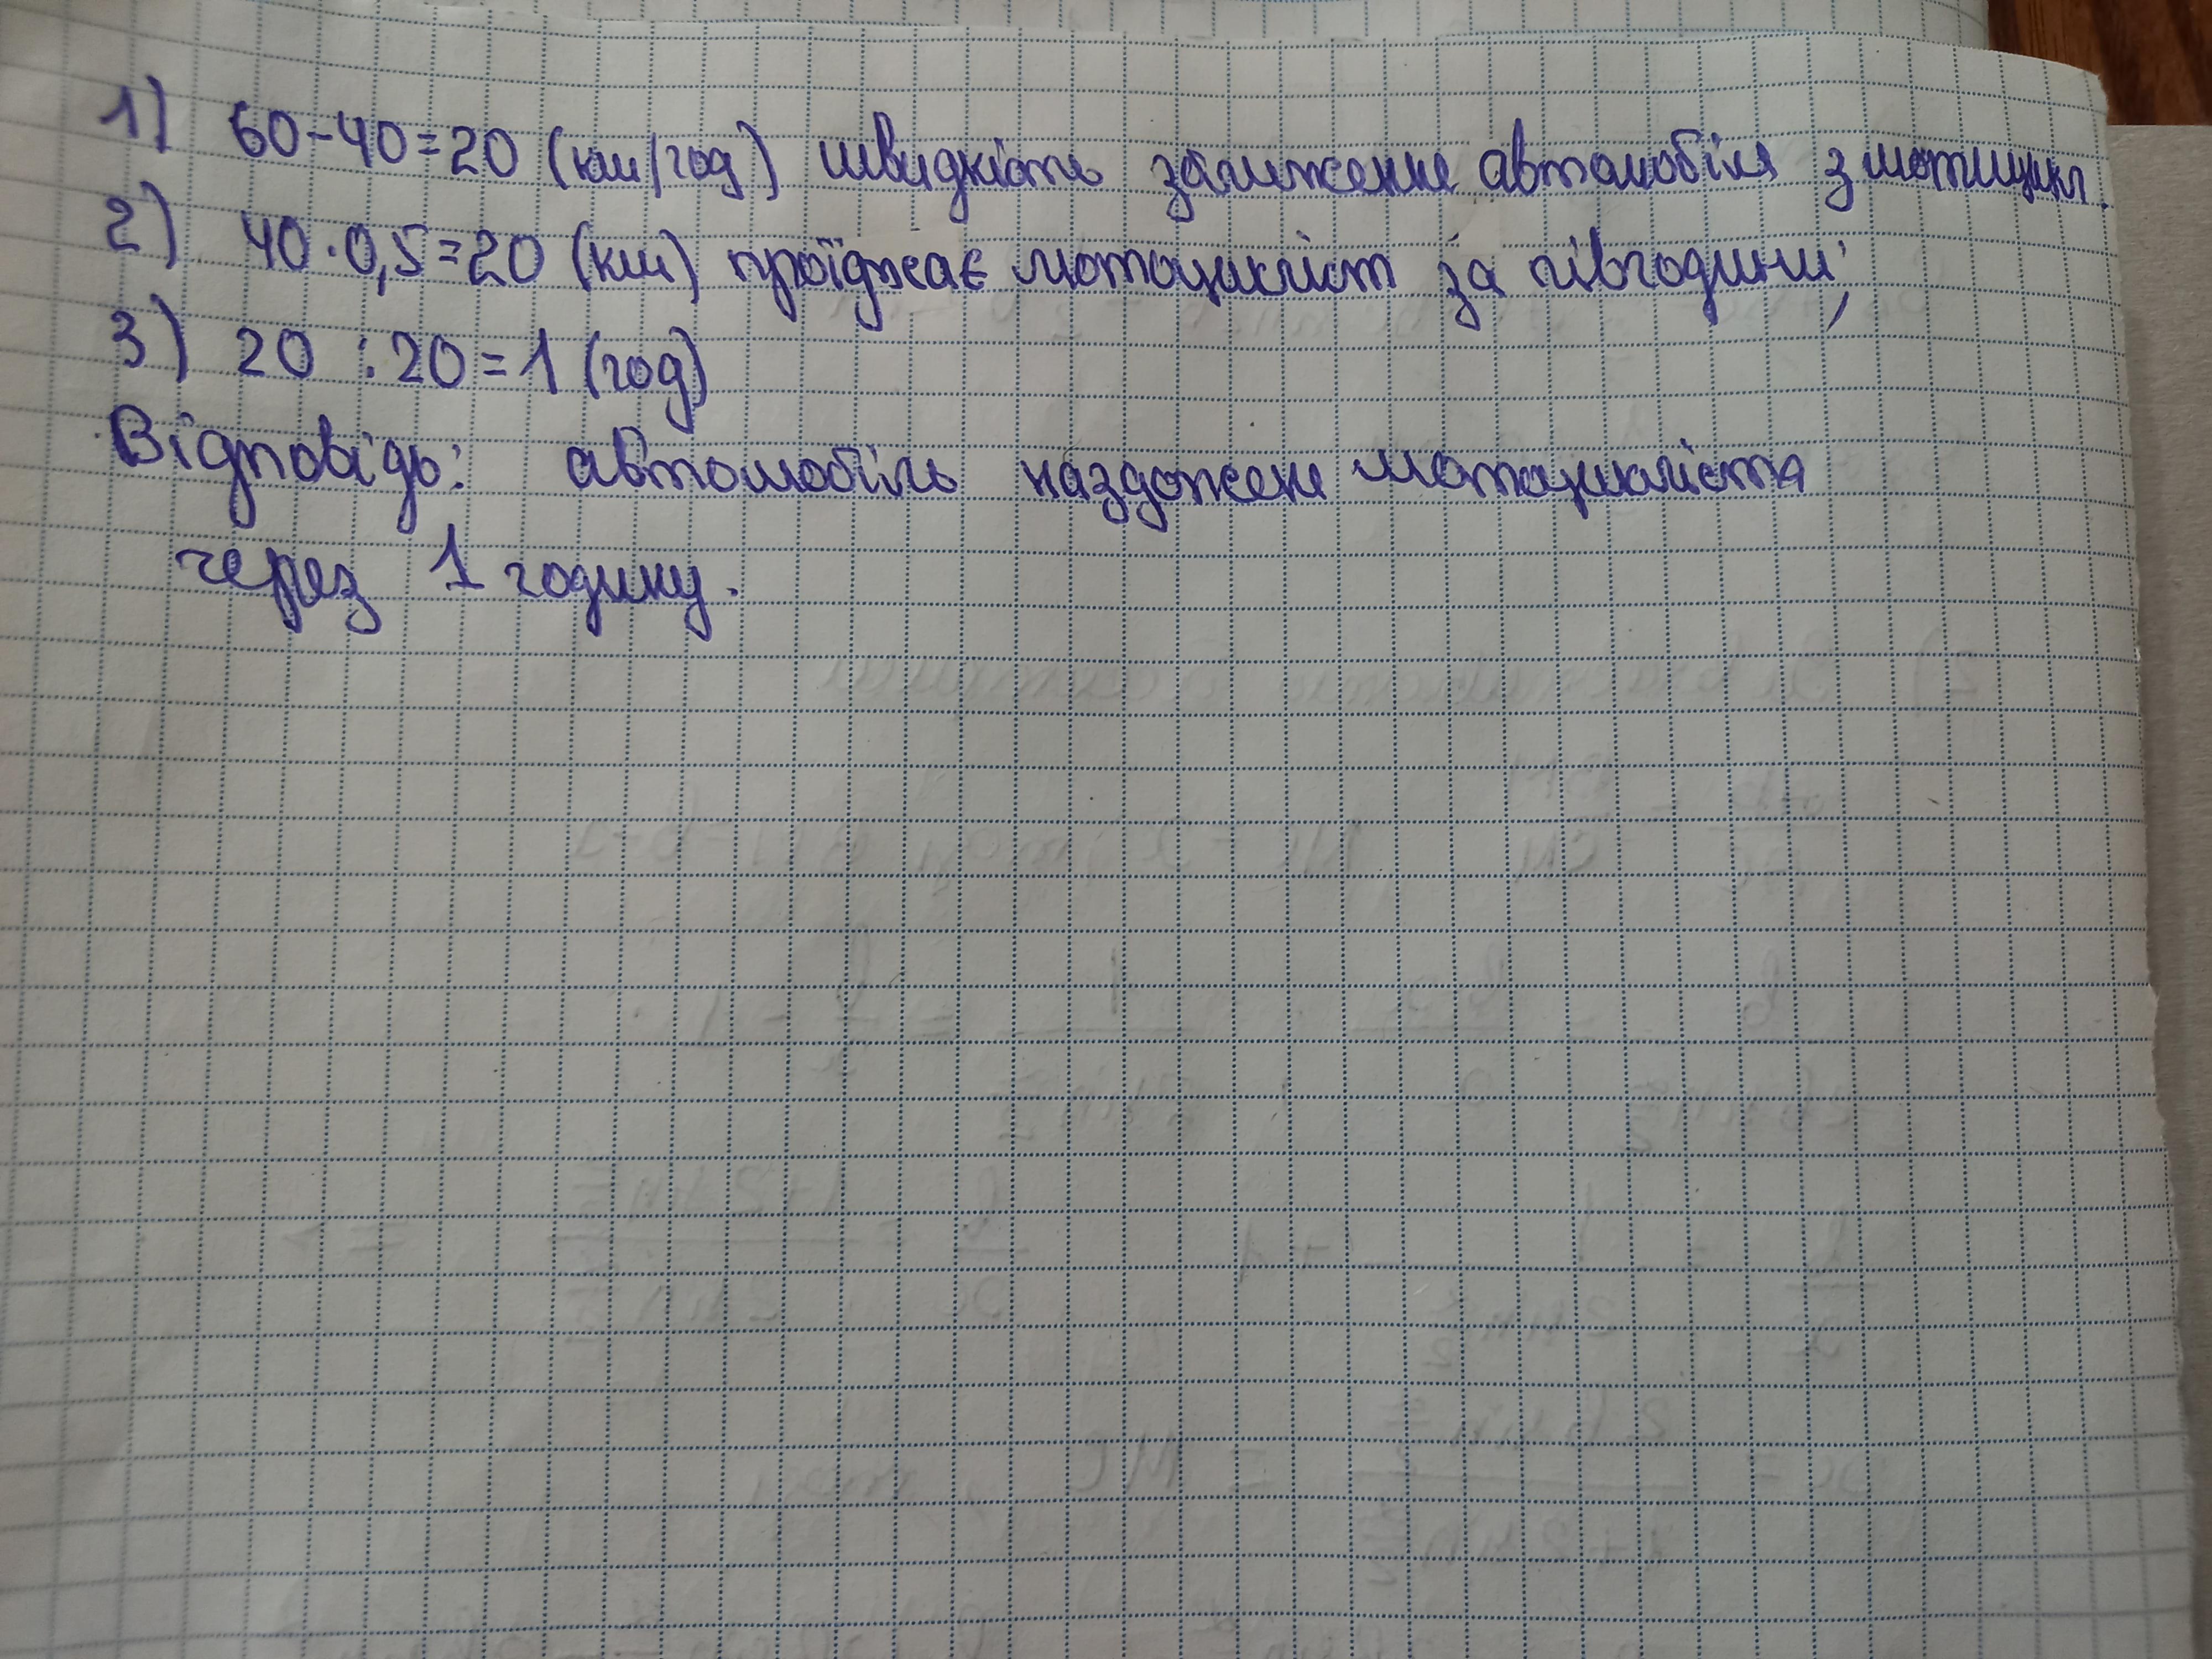 1) 60-40=20 (км/год) швидкість зближення автомобіля з мотоцикл.
2) 40·0,5=20 (км) проїджає мотоцикліст за півгодини;
3) 20 : 20=1 (год)
Відповідь: автомобіль наздожене мотоцикліста
через 1 годину.